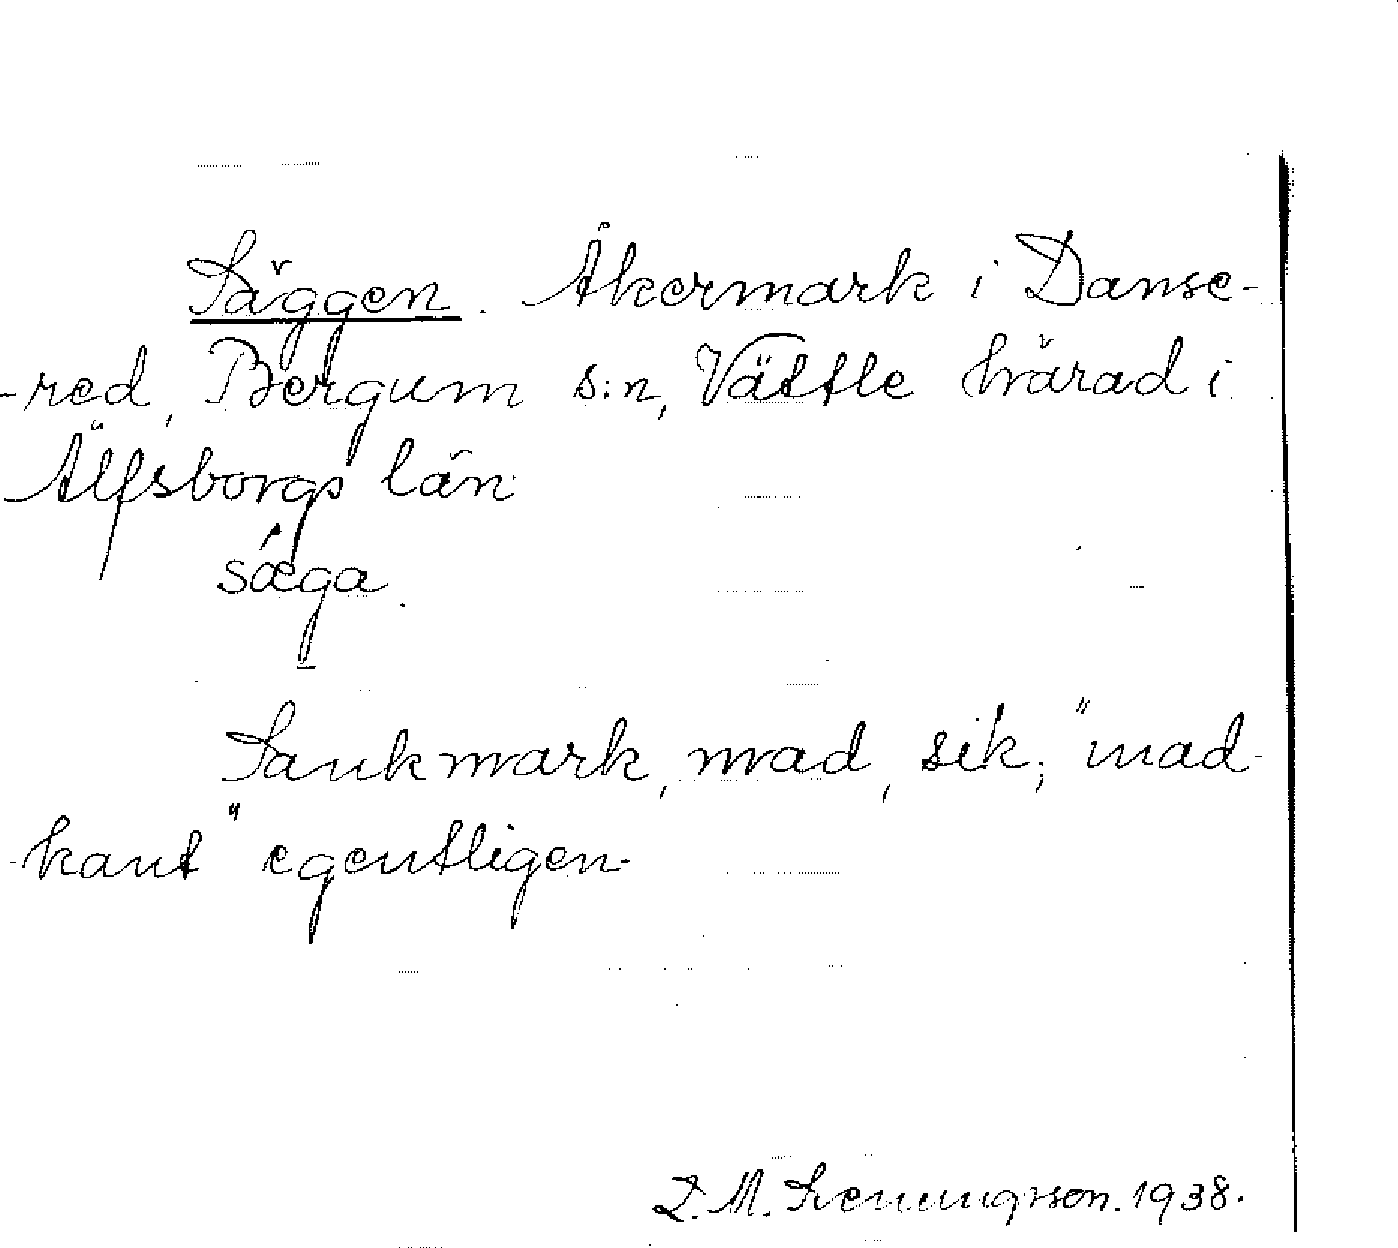 Säggen. Åkermark i Danse-
-red, Bergum s:n, Vättle härad i
Älfsborgs län
sǽga.
Sankmark, mad, sik; "mad-
-kant" egentligen
1938.